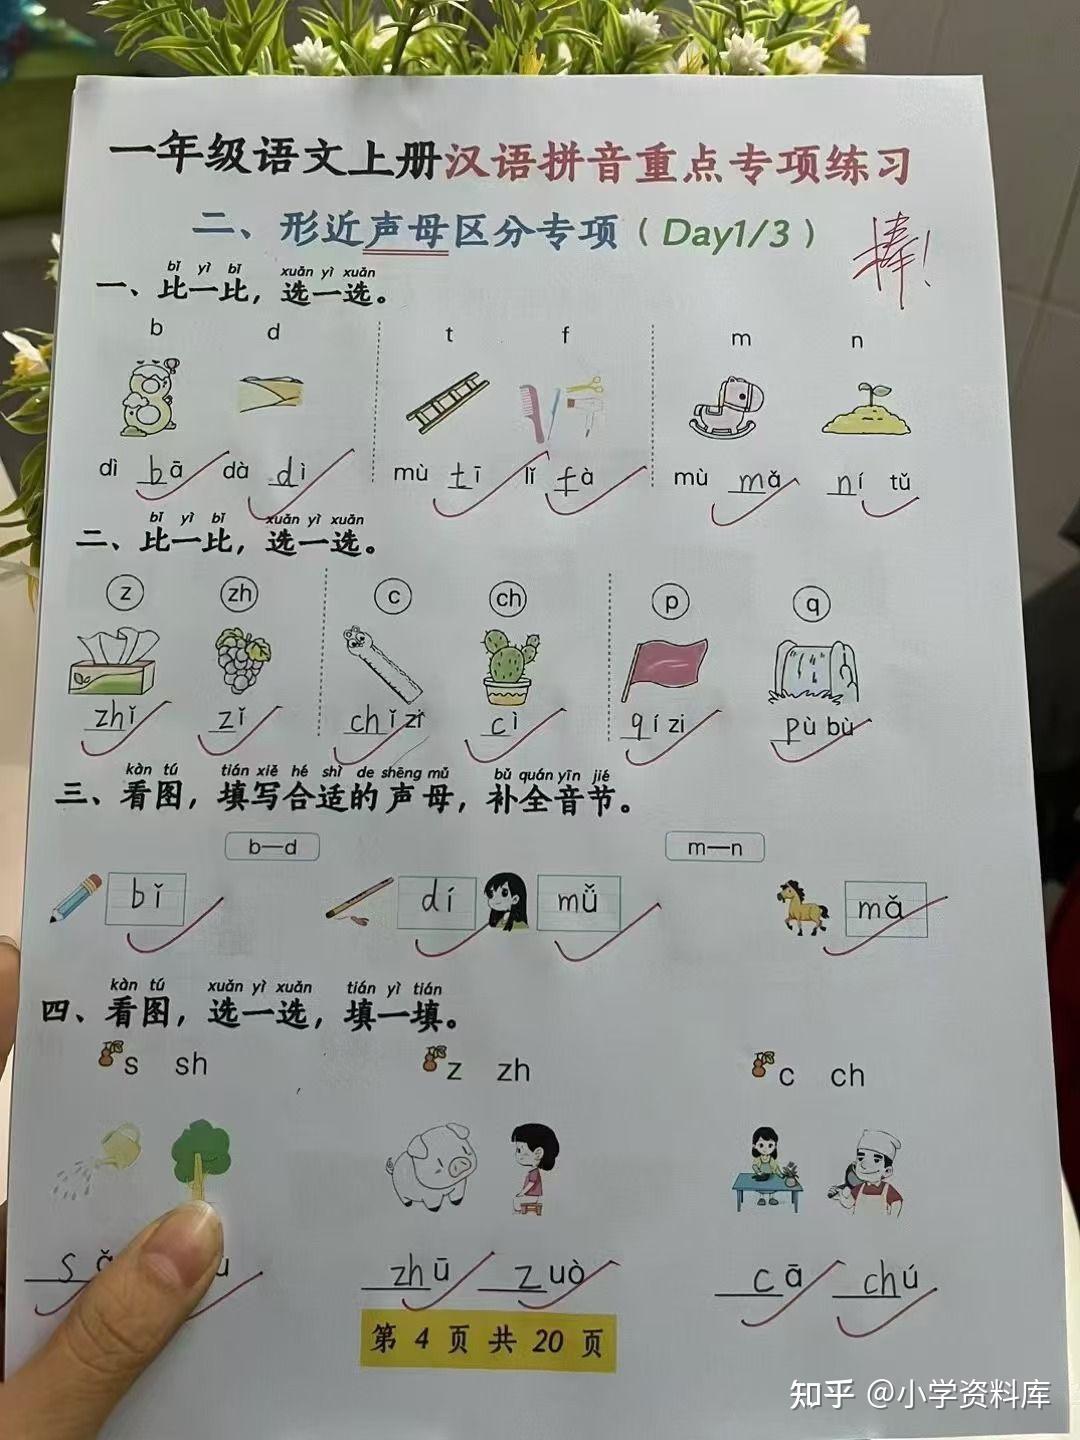 一年级语文上册汉语拼音重点专项练习
二、形近声母区分专项（Day1/3）
棒！
bǐ yì bǐ xuǎn yì xuǎn
一、比一比，选一选。
b d t f m n
dì bā dà dì mù tī lǐ fà mù mǎ ní tǔ
bǐ yì bǐ xuǎn yì xuǎn
二、比一比，选一选。
z zh c ch p q
zhǐ zǐ chǐ zi cì qí zi pù bù
kàn tú tián xiě hé shì de shēng mǔ bǔ quán yīn jié
三、看图，填写合适的声母，补全音节。
b—d m—n
bǐ dí mǚ mǎ
kàn tú xuǎn yì xuǎn tián yì tián
四、看图，选一选，填一填。
s sh z zh c ch
s ǎ zhū zuò cā chú
第 4 页 共 20 页
知乎 @小学资料库